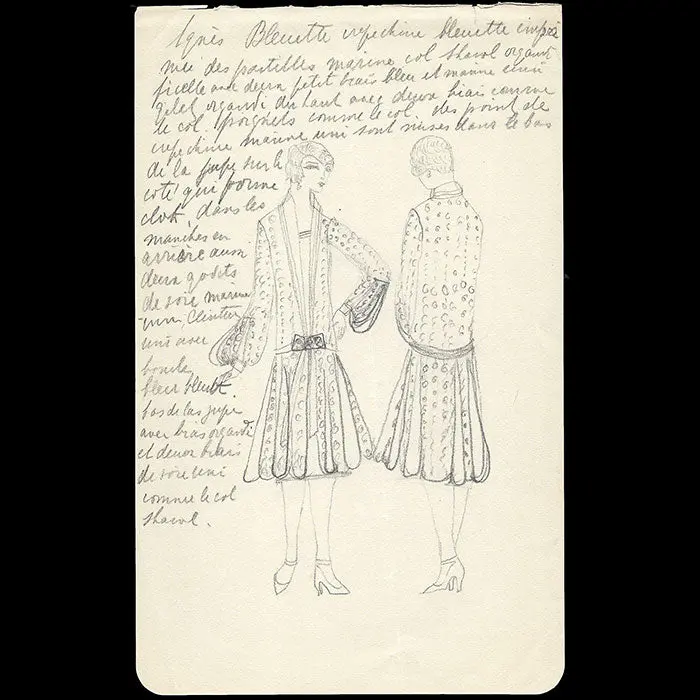 Agnès Bleuette crepe chine bleuette impri
mé des pastilles marine col shawl organdi
ficelle avec deux petit biais bleu et marine uni
gilet organdi du haut avec deux biais comme
le col. poignets comme le col. des point de
crepe chine marine uni sont mises dans le bas
de la jupe sur le
coté qui forme
cloche, dans les
manches en
arrière aussi
deux godets
de soie marine
uni, ceinture
uni avec
boucle
bleu bleuet.
bas de la jupe
avec biais organdi
et deux biais
de soie uni
comme le col
shawl.